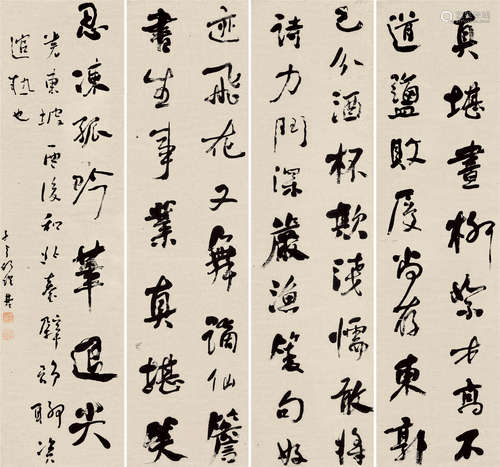 真堪畫柳絮才高不
道鹽敗履尚存東郭
已分酒杯欺淺懦敢將
詩力鬥深嚴漁簑句好
迹飛花又舞謫仙簷
書生事業真堪笑
忍凍孤吟筆退尖
東坡雪後和北臺壁韻聊資
也